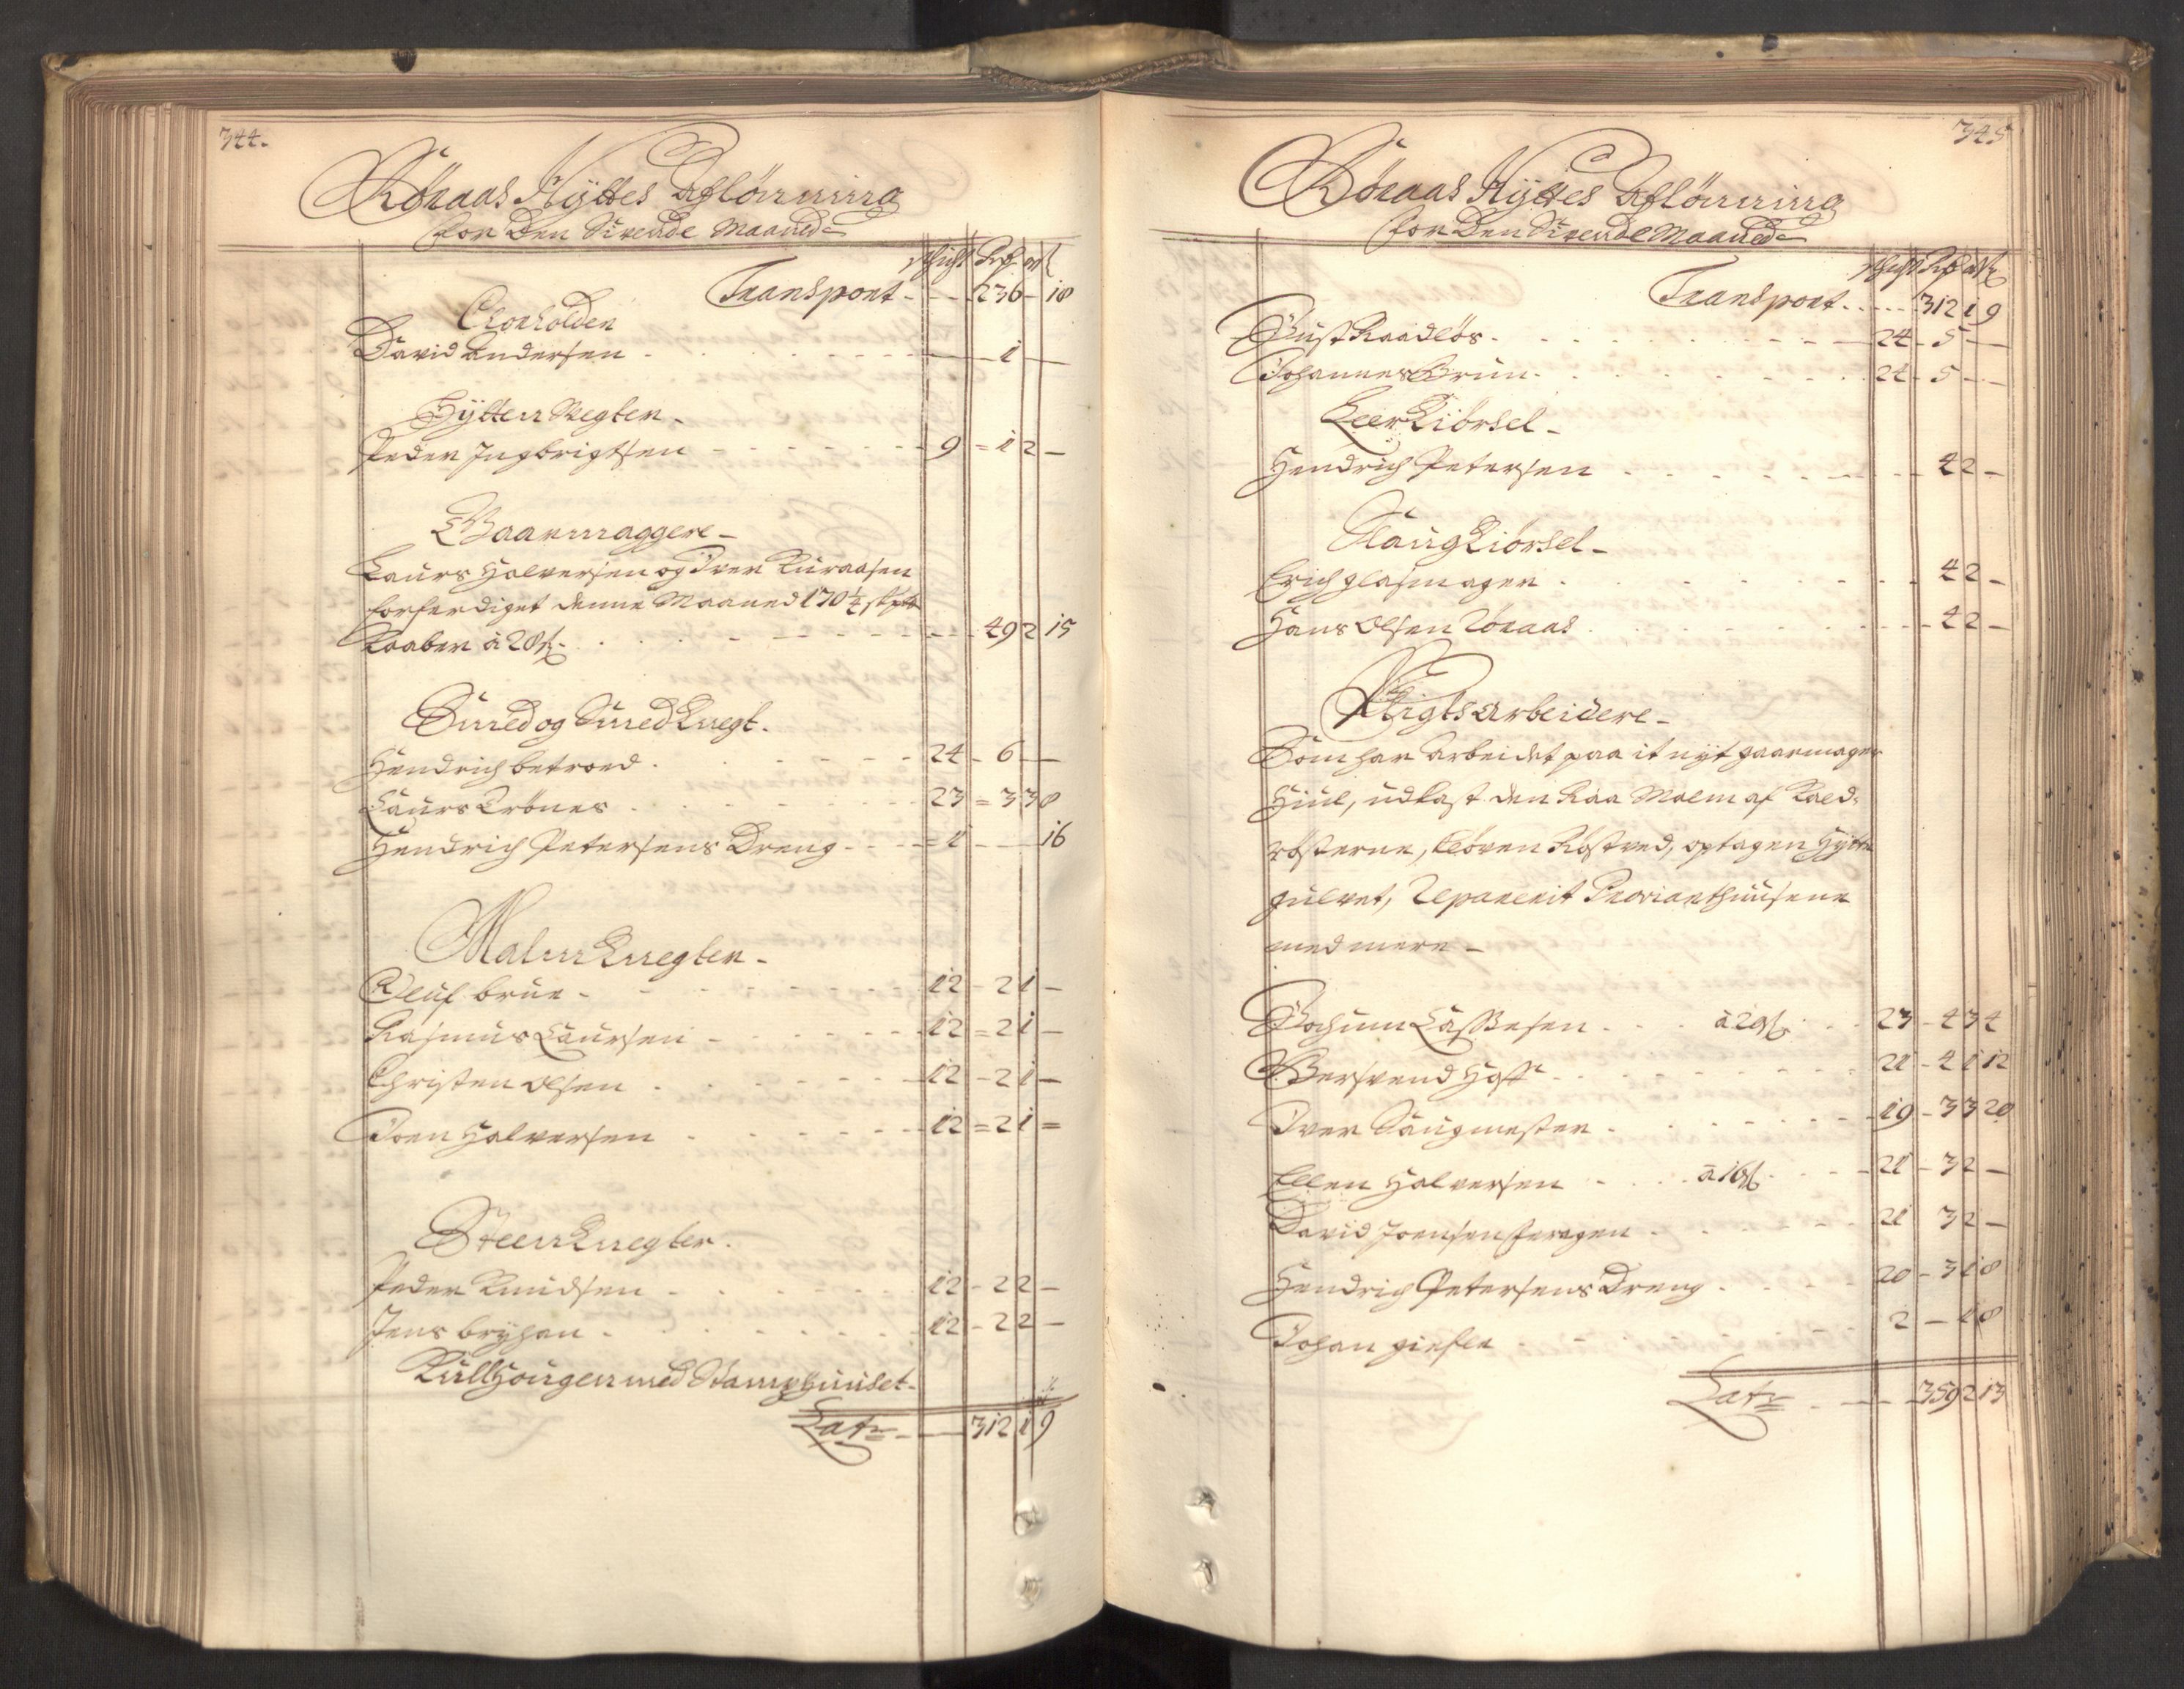 344.
Röraas Hyttes Aflönning
for Den Sivende Maaned
Schicht Rdr ort s
Transport - 236 - 18
Clocholden
David Andersen - 1 -
Hytten Wegter -
Peder Ingbrigtsen - 9 = 1 2 -
Gaarmaggere -
Laurs Halversen og Iver Kuraasen
forferdiget denne Maaned 170 1/4 sk
Kaaber à 28 s - 49 2 15
Smed og Smed Knegt.
Hendrich betroed - 24 - 6 -
Laurs Trönes - 23 = 3 3 8
Hendrich Petersens Dreng - = 1 - 16
Malm Knegter -
Oluf brue - 12 - 2 1 -
Rasmus Laursen - 12 = 2 1 -
Christen Olsen - 12 - 2 1 -
Joen Halversen - 12 = 2 1 =
Steen Knegter.
Peder Knudsen - 12 - 2 2 -
Jens bryhan - 12 - 2 2 -
Kullhougen med Stamphuuset -
Latr - 312 1 9
345
Röraas Hyttes Aflönning
for Den Sivende Maaned
Schicht Rdr ort s
Transport - 312 1 9
Gust Raadlös - 24 - 5 -
Johannes Bruun - 24 - 5 -
Leer Kiörsel -
Hendrich Petersen - 4 2 -
Slaug Kiörsel -
Erich glasmager - 4 2 -
Hans Olsen Röraas - 4 2 -
Pligts Arbeidere -
Som har Arbeidet paa it nyt gaarmager
Hiul, udkast den Raa Malm af Kald-
rösterne, klöven Röstved, optagen Hytte
gulvet, Reparerit Proviant huusene
med mere -
Jochum Lassesen - à 20 s - 23 - 4 3 4
Bersvend Hoff - 21 - 4 1 12
Iver Saugmester - 19 - 3 3 20
Ellen Halversen - à 16 s - 21 - 3 2 -
David Joensen feragen - 21 3 2 -
Hendrich Petersens Dreng - 20 - 3 1 8
Johan giefle - 2 - 1 8
Latr - 359 2 13